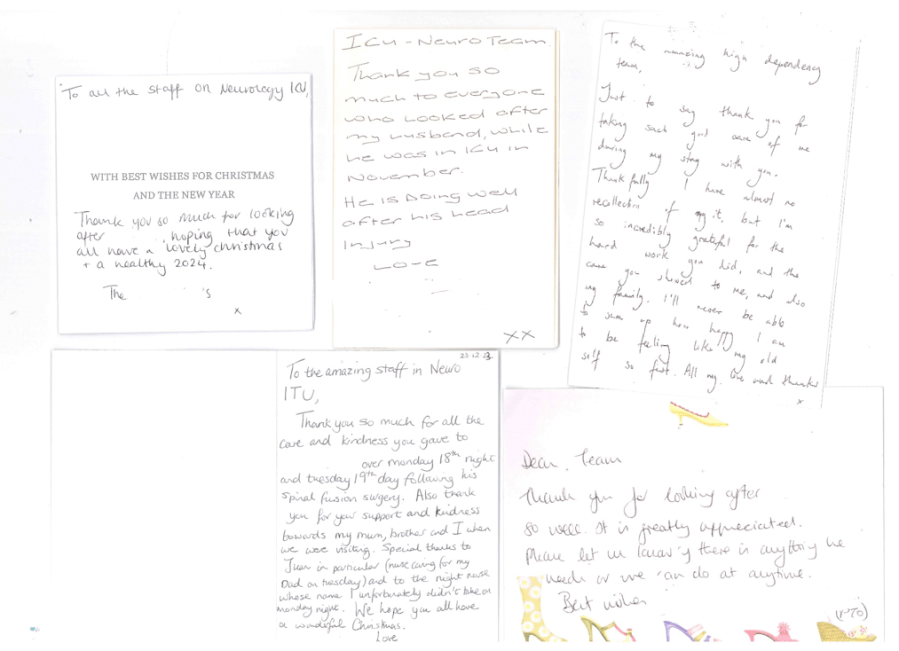 To all the staff on Neurology ICU,
WITH BEST WISHES FOR CHRISTMAS
AND THE NEW YEAR
Thank you so much for looking
after , hoping that you
all have a lovely christmas
+ a healthy 2024.
The 's
x
ICU - Neuro Team
Thank you so
much to everyone
who looked after
my husband, while
he was in ICU in
November.
He is Doing well
after his head
injury
Love
XX
To the high dependency
team,
Just to say thank you for
taking such good care of me
during my stay with you.
Thankfully I have almost no
recollection of it, but I'm
so incredibly grateful for the
hard work you did, and the
care you showed to me, and also
my family. I'll never be able
to sum up how happy I am
to be feeling like my old
self so fast. All my love and thanks
x
To the amazing staff in Neuro
ITU,
Thank you so much for all the
care and kindness you gave to
over monday 18th night
and tuesday 19th day following his
spinal fusion surgery. Also thank
you for your support and kindness
towards my mum, brother and I when
we were visiting. Special thanks to
Juan in particular (nurse caring for my
Dad on tuesday) and to the night nurse
whose name I unfortunately didn't take on
monday night. We hope you all have
a wonderful Christmas.
Love
Dear, Team
Thank you for looking after
so well. It is greatly appreciated.
Please let us know if there is anything he
needs or we can do at anytime.
Best wishes
(PTO)